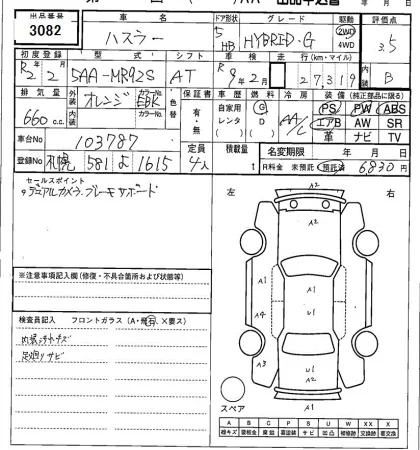 出品番号 車名 ドア形状 グレード 駆動 評価点
3082 ハスラー 5 HB HYBRID・G 2WD 4WD 3.5
初度登録 型式 シフト 車検 走行(km・マイル) 内装
R2 2 5AA-MR92S AT R9年2月 27,319 B
排気量 外装 オレンジ カラーNo. EBK 色替 保証書 車歴 燃料 冷房 装備(純正部品に限る)
660 c.c. 内装 カラーNo. 有・無 自家用 レンタ G D AA/C PS PW ABS
エアB AW SR
革 ナビ TV
車台No 103787
登録No 札幌 581 よ 1615 定員 4人 積載量 t 名変期限 年 月 日
R料金 未預託・預託済 6830円
セールスポイント
デュアルカメラブレーキサポート
左 右
※注意事項記入欄(修復・不具合箇所および状態等)
検査員記入 フロントガラス(A・飛石、×要ス)
足廻リサビ
A2
A1
A1
A4 U1
U1
A3 A1
A2
A1
スペア
A B P C S U W X XX
線キズ 塗装済 サビ 凹凸 補修跡 交換跡 要交換